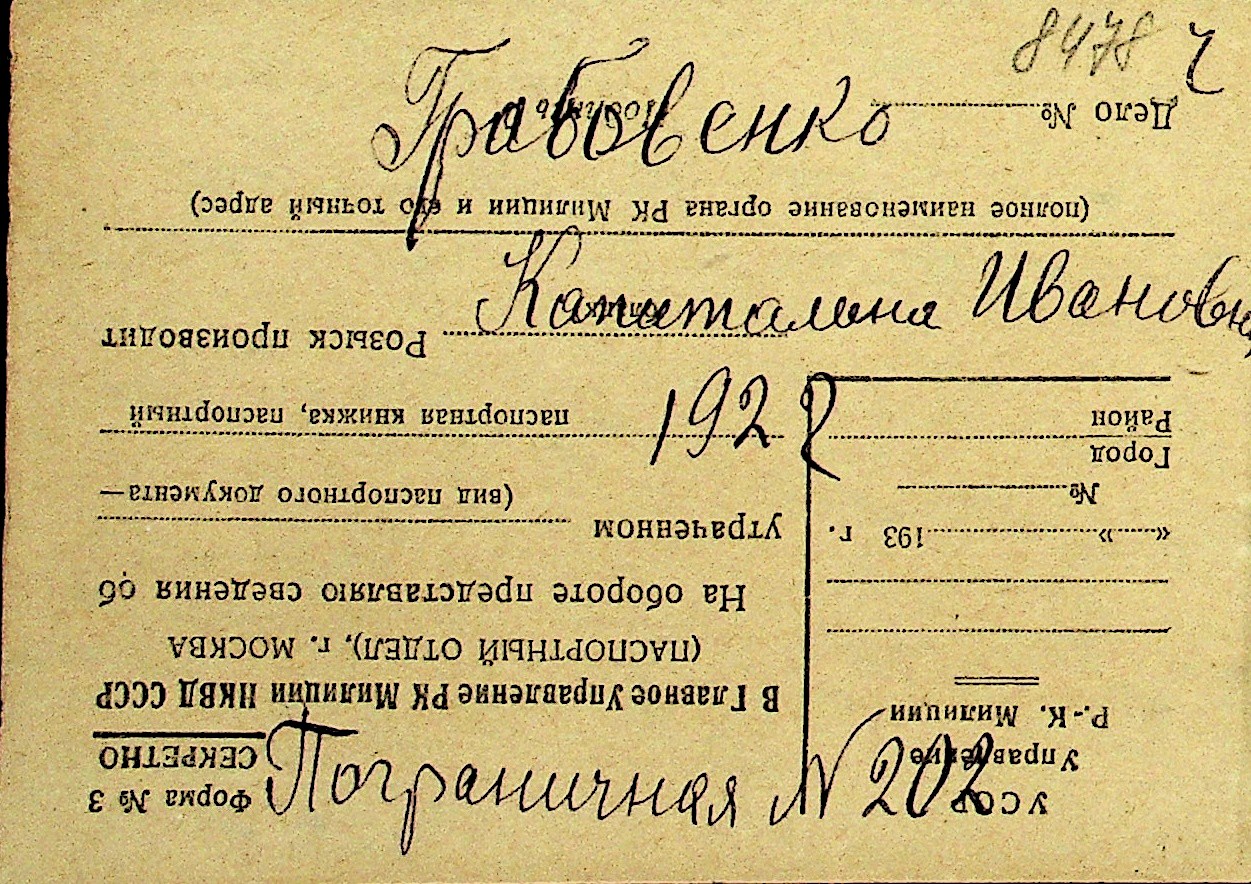 8478 ч
Грабовенко
Капиталина Ивановна
1922
Пограничная № 202
УССР
Управление
Р.-К. Милиции
«......» 193 г.
№
Город
Район
Форма № 3
СЕКРЕТНО
В Главное Управление РК Милиции НКВД СССР
(ПАСПОРТНЫЙ ОТДЕЛ), г. МОСКВА
На обороте представляю сведения об
утраченном
(вид паспортного документа—
паспортная книжка, паспортный
Розыск производит
(полное наименование органа РК Милиции и его точный адрес)
Дело №